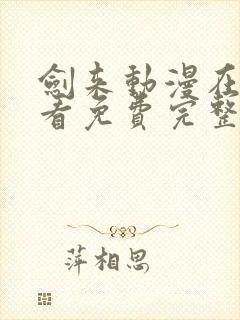 劍來動漫在
看免費完整
萍相思